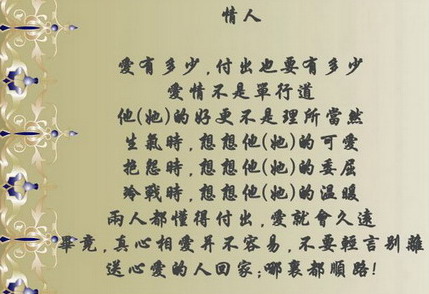 情人
愛有多少,付出也要有多少
愛情不是單行道
他(她)的好更不是理所當然
生氣時,想想他(她)的可愛
抱怨時,想想他(她)的委屈
冷戰時,想想他(她)的溫暖
兩人都懂得付出,愛就會久遠
畢竟,真心相愛并不容易,不要輕言別離
送心愛的人回家;哪裏都順路!